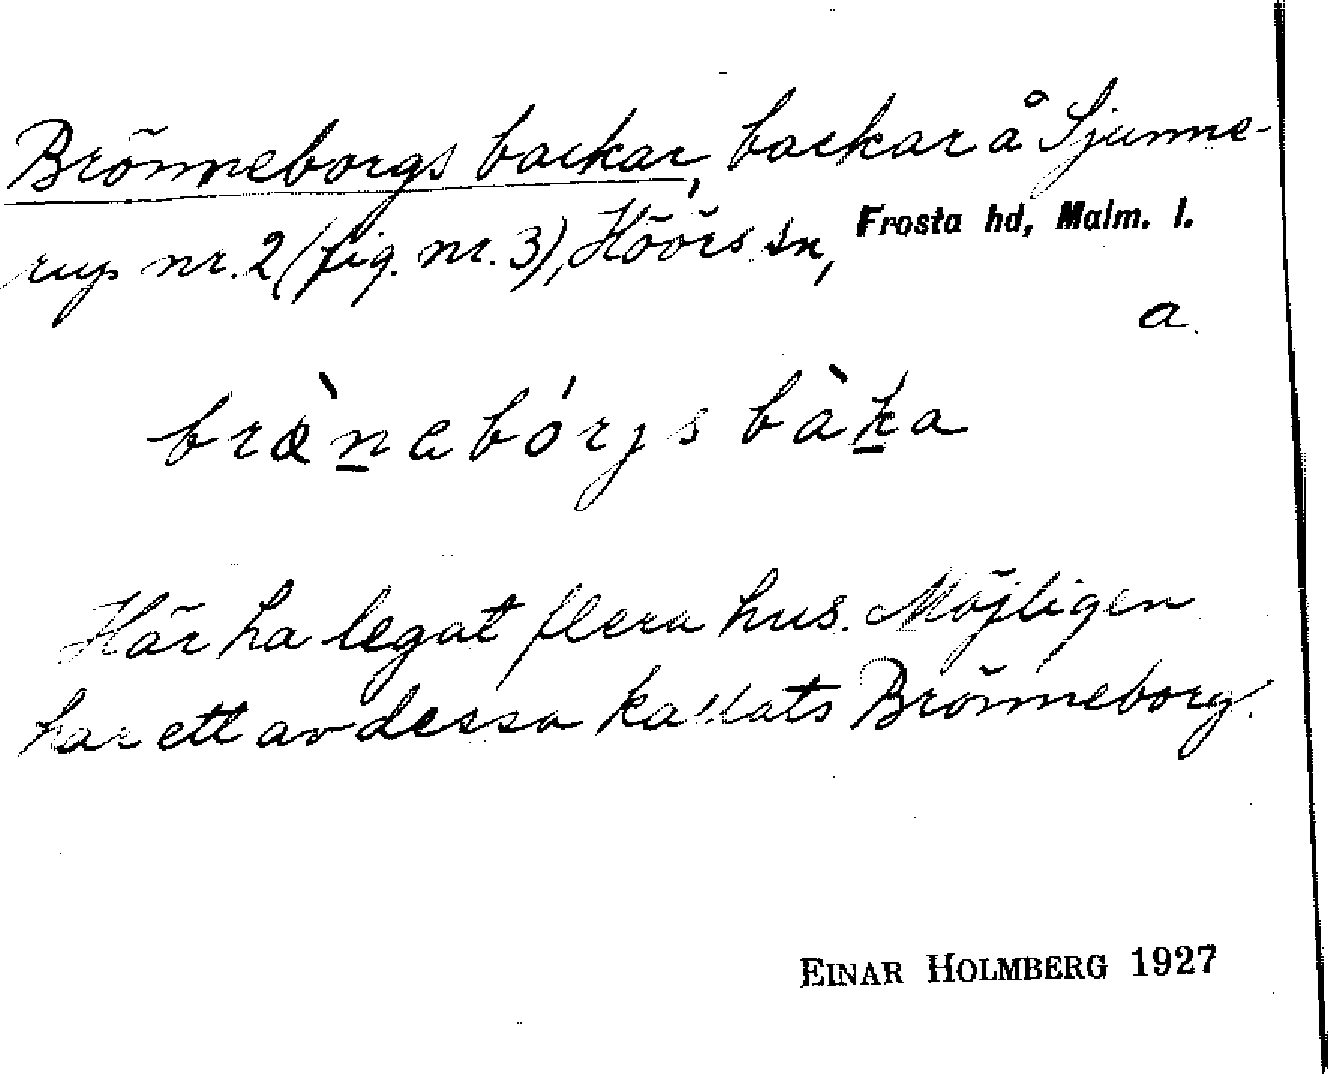 Brönneborgs backar, backar å Sjunne-
rup nr. 2 (fig. nr. 3), Höörs sn, Frosta hd, Malm. l.
a.
bræ̀nabórgs bàka
Här ha legat flera hus. Möjligen
har ett av dessa kallats Brönneborg.
EINAR HOLMBERG 1927